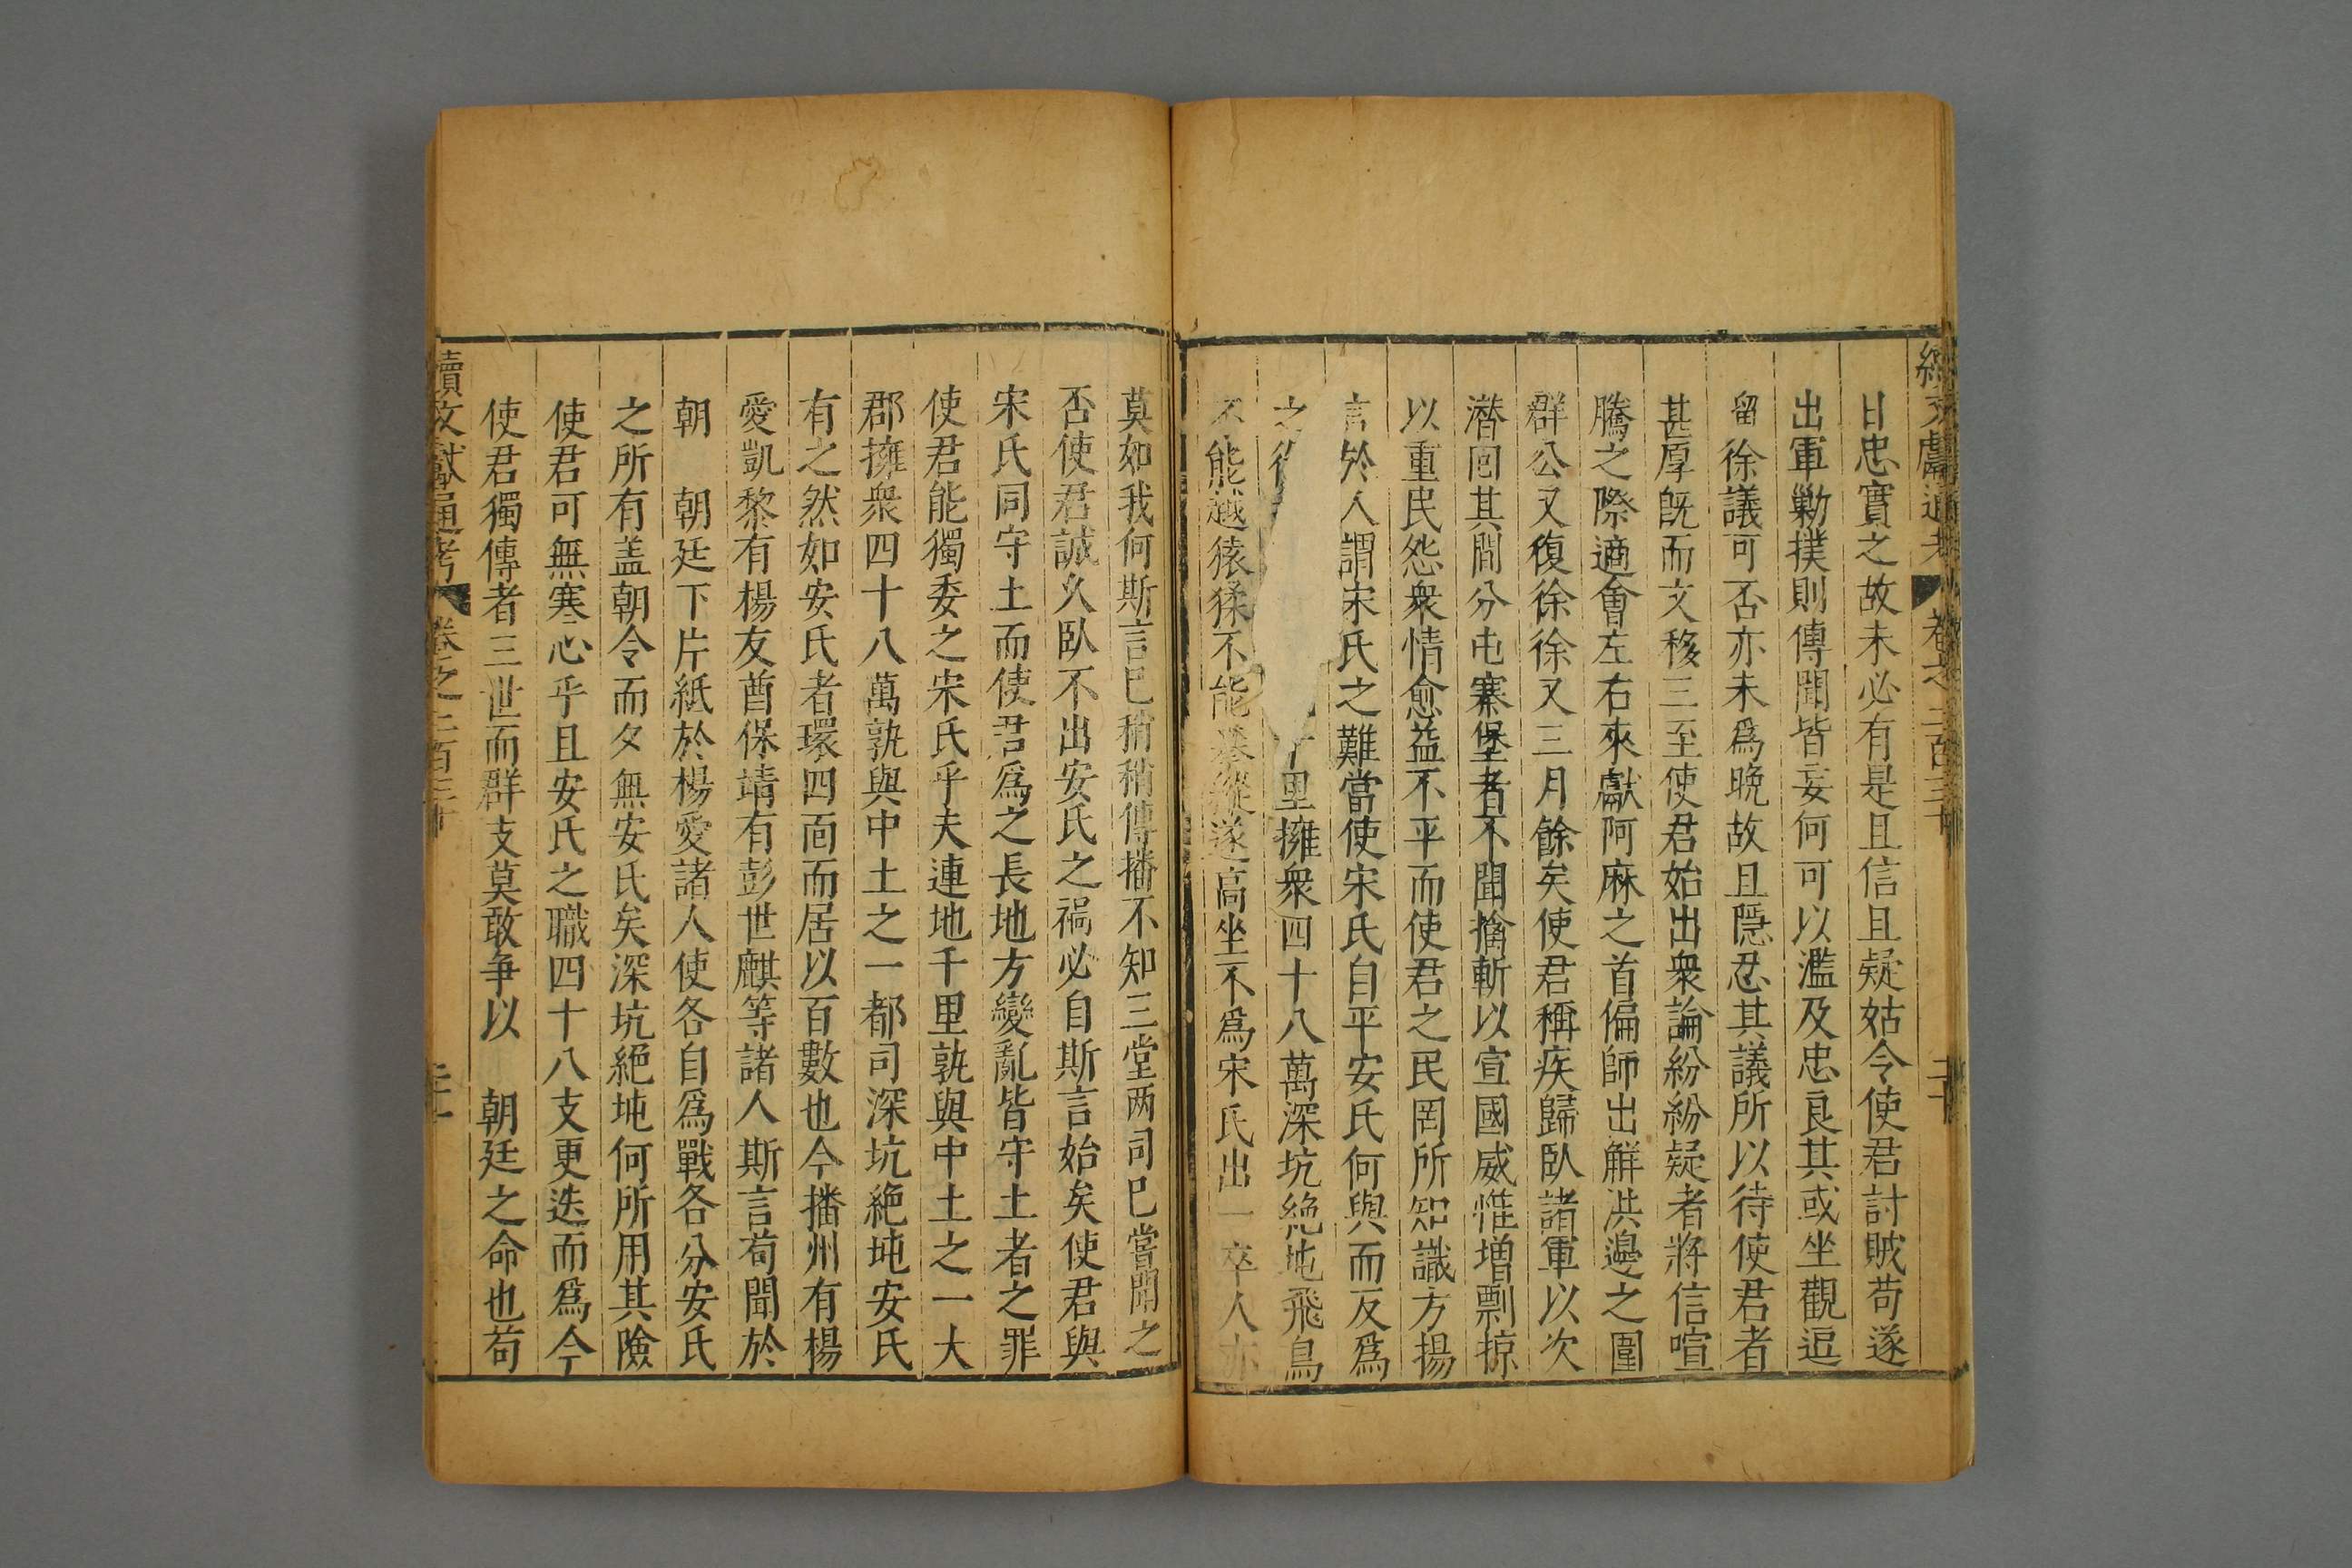 日忠實之故未必有是且信且疑姑令使君討賊苟遂
出軍勦撲則傳聞皆妄何可以濫及忠良其或坐觀逗
留徐議可否亦未爲晩故且隱忍其議所以待使君者
甚厚旣而文移三至使君始出衆論紛紛疑者將信喧
騰之際適會左右來獻阿麻之首偏師出解洪邊之圍
群公又復徐徐又三月餘矣使君稱疾歸臥諸軍以次
潛囘其間分屯寨堡者不聞擒斬以宣國威惟增剽掠
以重民怨衆情愈益不平而使君之民罔所知識方揚
言於人謂宋氏之難當使宋氏自平安氏何與而反爲
之 里擁衆四十八萬深坑絶坉飛鳥
不能越猿猱不能 遂高坐不爲宋氏出一卒人亦
莫如我何斯言已稍稍傳播不知三堂两司已嘗聞之
否使君誠久臥不出安氏之禍必自斯言始矣使君與
宋氏同守土而使君爲之長地方變亂皆守土者之罪
使君能獨委之宋氏乎夫連地千里孰與中土之一大
郡擁衆四十八萬孰與中土之一都司深坑絶坉安氏
有之然如安氏者環四靣而居以百數也今播州有楊
愛凱黎有楊友酋保靖有彭世麒等諸人斯言苟聞於
朝 朝廷下片紙於楊愛諸人使各自爲戰各分安氏
之所有盖朝令而夕無安氏矣深坑絶坉何所用其險
使君可無寒心乎且安氏之職四十八支更迭而爲今
使君獨傳者三世而群支莫敢争以 朝廷之命也苟
續文獻通考 卷之二百三十 二十一